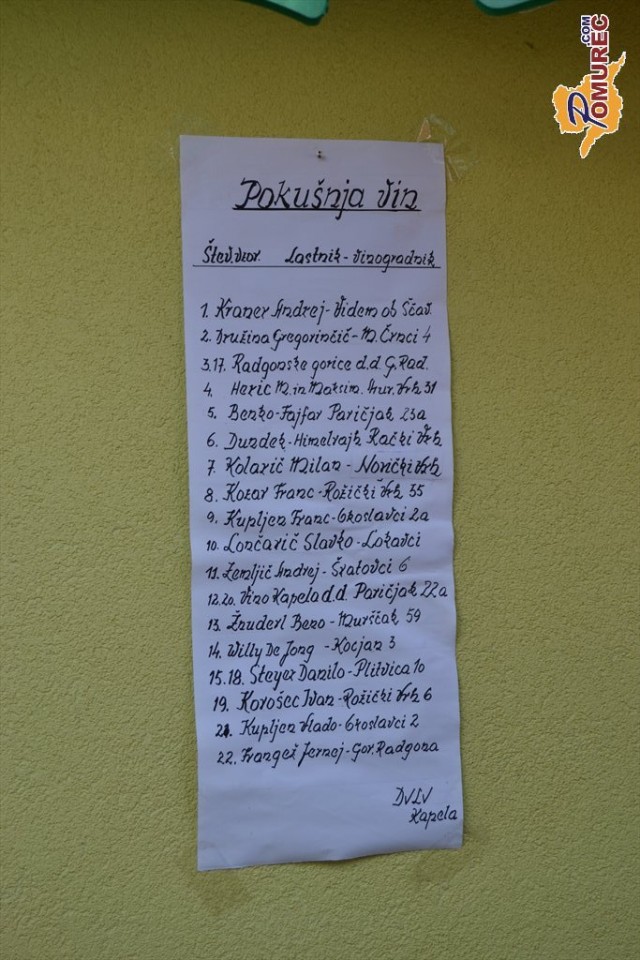 POMUREC.COM
Pokušnja vin
Štev. vzor. Lastnik - vinogradnik
1. Kraner Andrej - Videm ob Ščav.
2. Družina Gregorinčič - M. Črnci 4
3.17. Radgonske gorice d.d. G. Rad.
4. Heric M. in Maksim. Mur. Vrh 31
5. Benko - Fajfar Paričjak 23a
6. Dundek - Himelrajh Rački Vrh
7. Kolarič Milan - Norički Vrh
8. Kozar Franc - Rožički Vrh 55
9. Kupljen Franc - Okoslavci 2a
10. Lončarič Slavko - Lokavci
11. Zemljič Andrej - Šratovci 6
12.20. Vino Kapela d.d. Paričjak 22a
13. Žnuderl Beno - Murščak 59
14. Willy De Jong - Kocjan 3
15.18. Steyer Danilo - Plitvica 10
19. Korošec Ivan - Rožički Vrh 6
21. Kupljen Vlado - Okoslavci 2
22. Frangež Jernej - Gor. Radgona
DVLV
Kapela